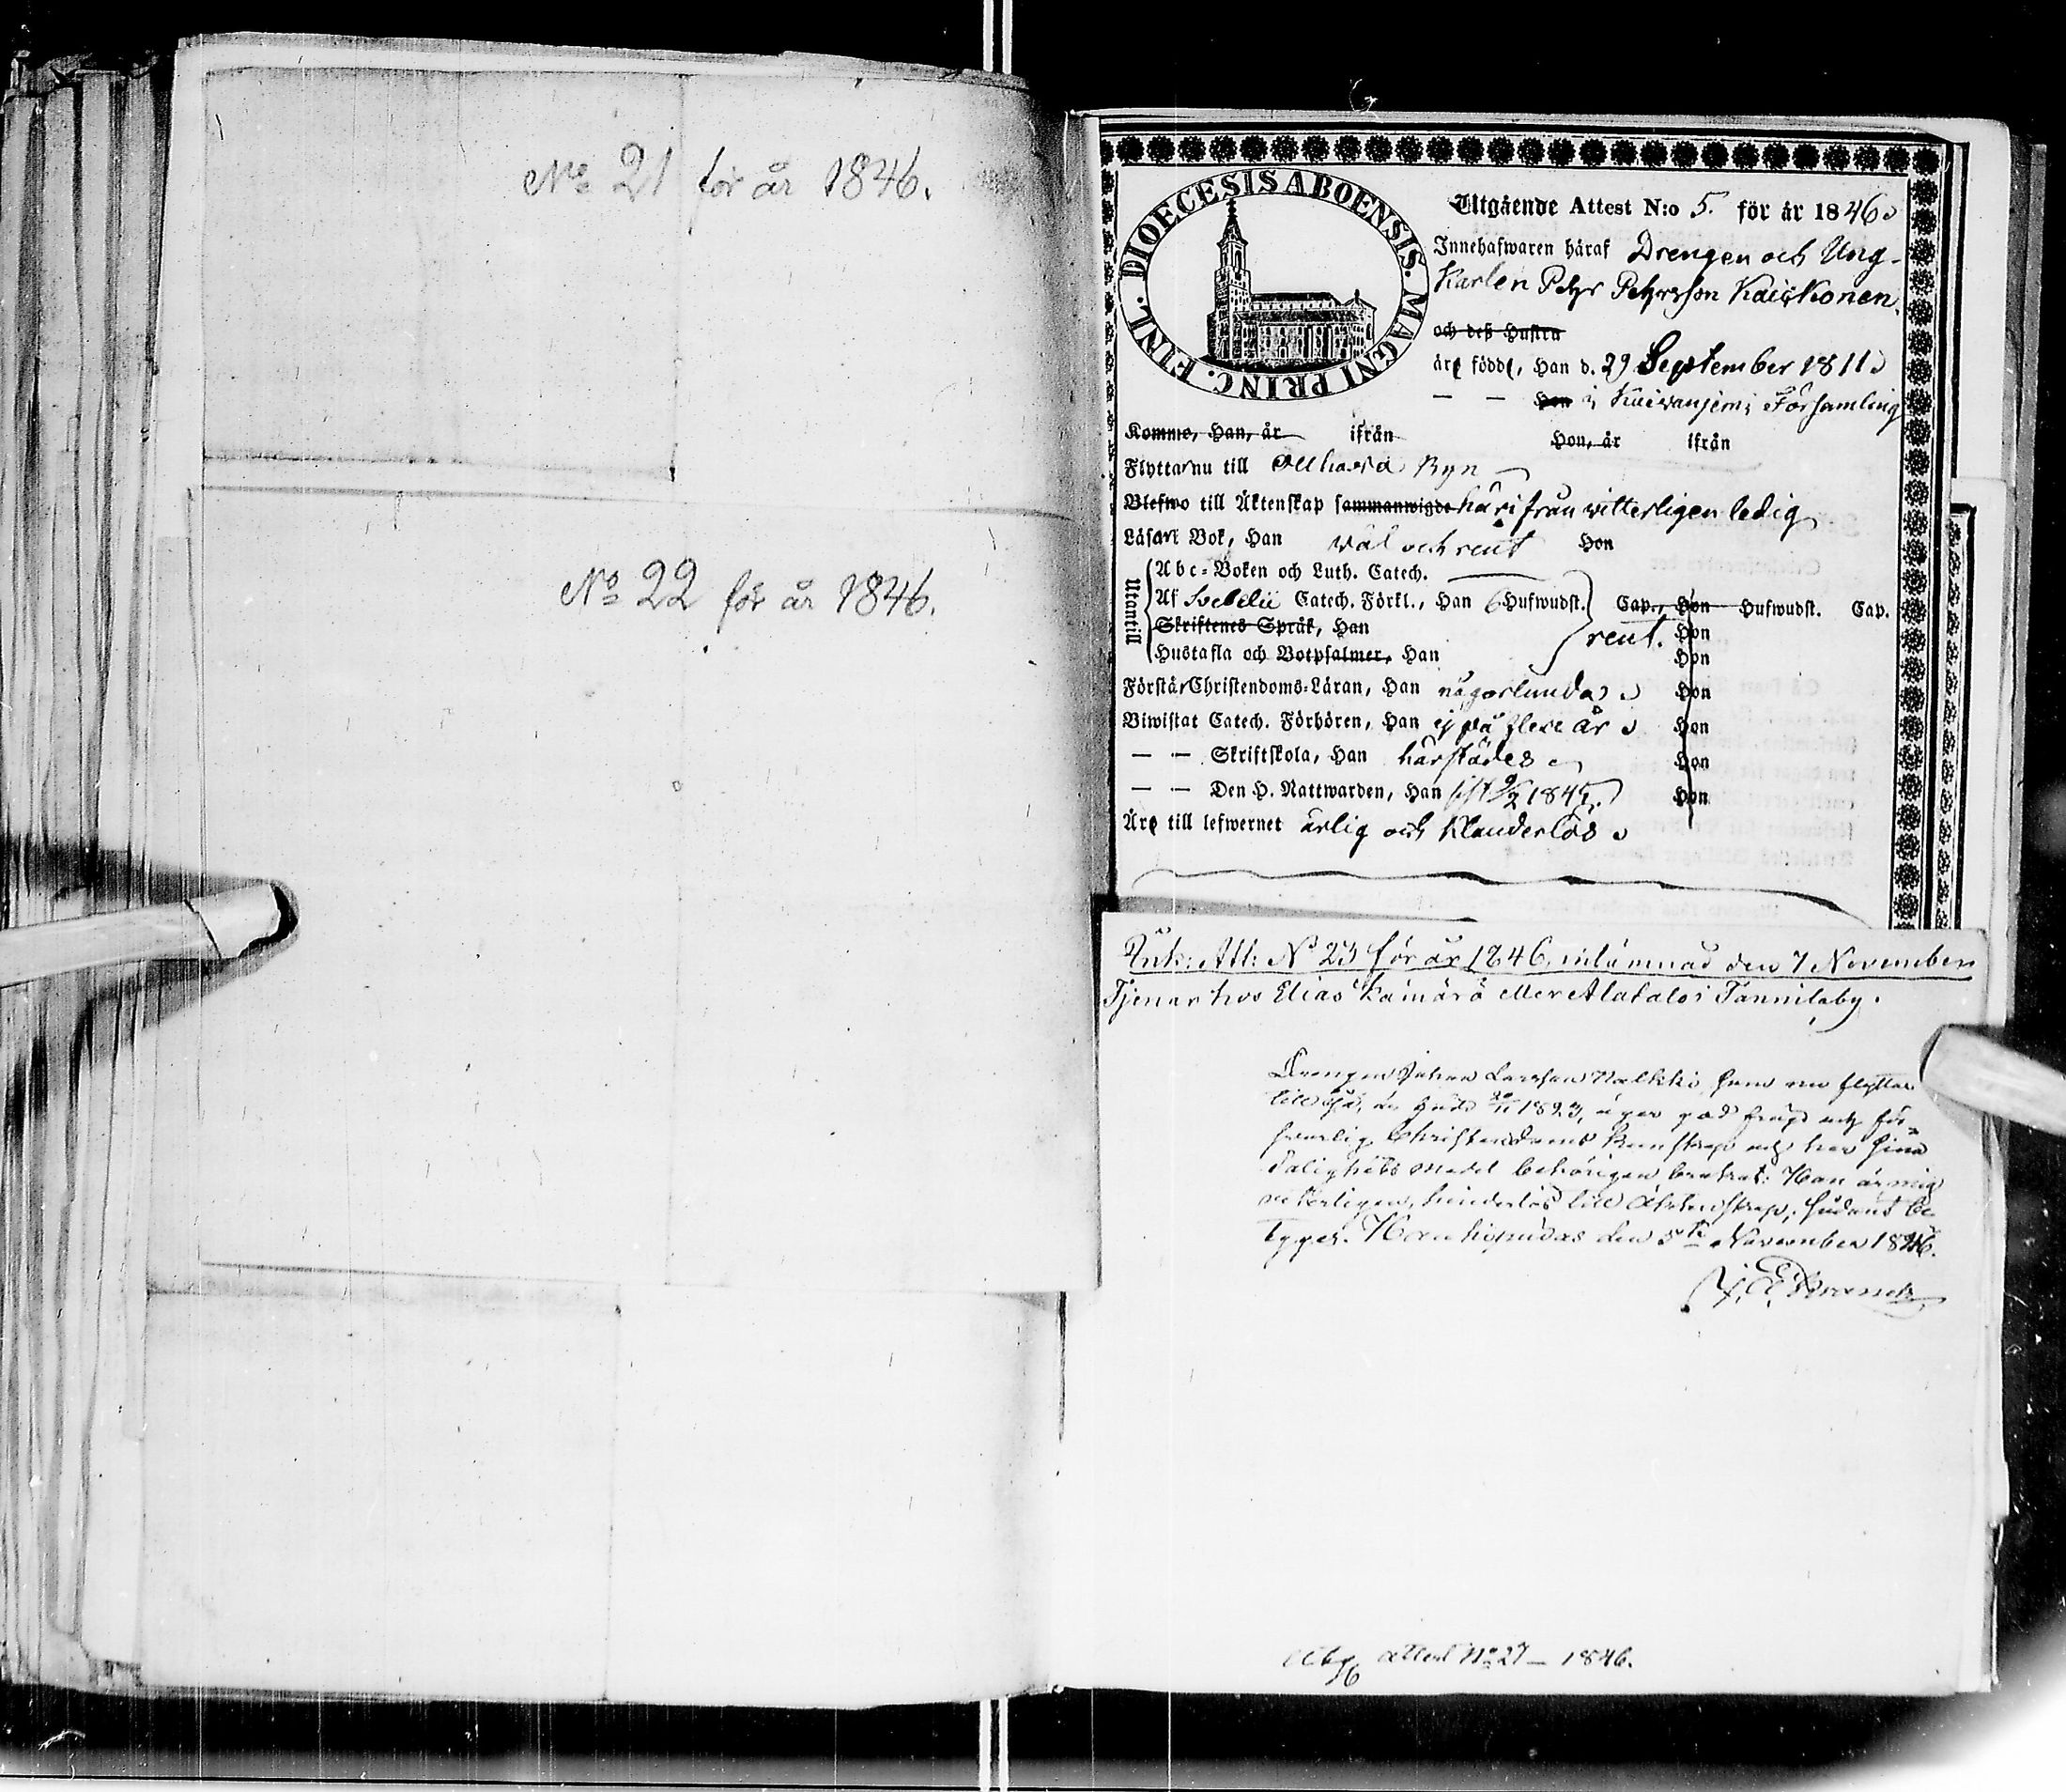 No 21 för år 1846.
No 22 för år 1846.
DIOECESIS ABOENSIS. MAGNI PRINC. FINL.
Utgående Attest N:o 5. för år 1846
Innehafwaren häraf Drengen och Ung-
Karlen Petr Petersson Kaiskonen.
och deß Hustru
äre födde, Han d. 29 September 1811
— — Hon i Församling
Komme, Han, år ifrån Hon, år ifrån
Flytta nu till Byn
Blefwo till Äktenskap sammanwigde härifrån witterligen ledig
Läsa i Bok, Han wäl och rent Hon
Utantill
Abc-Boken och Luth. Catech.
Af Svebelii Catech. Förkl., Han 6 Hufwudst. Cap., Hon Hufwudst. Cap.
Skriftenes Språk, Han rent. Hon
Hustafla och Botpsalmer, Han Hon
Förstår Christendoms-Läran, Han någorlunda Hon
Biwistat Catech. Förhören, Han ej på flere år Hon
— — Skriftskola, Han härstädes Hon
— — Den H. Nattwarden, Han sist Hon
Äre till lefwernet ärlig och klanderlös
Ank: Att: No 23 för år 1846, inlämnad den 7 November
Tjenar hos Elias Kamärä eller Alatalo i Tannilaby.
Drengen Johan Larsson Nalkki, som nu flyttar
till Ijå, är född 1823, äger god frägd och för-
svarlig Christendoms kunskap och har sina
Salighets medel behörigen brukat: Han är mig
veterligen, hinderlös till Äktenskap; sådant be-
tygar. Haukipudas den 5te November 1846.
attest No 27 — 1846.